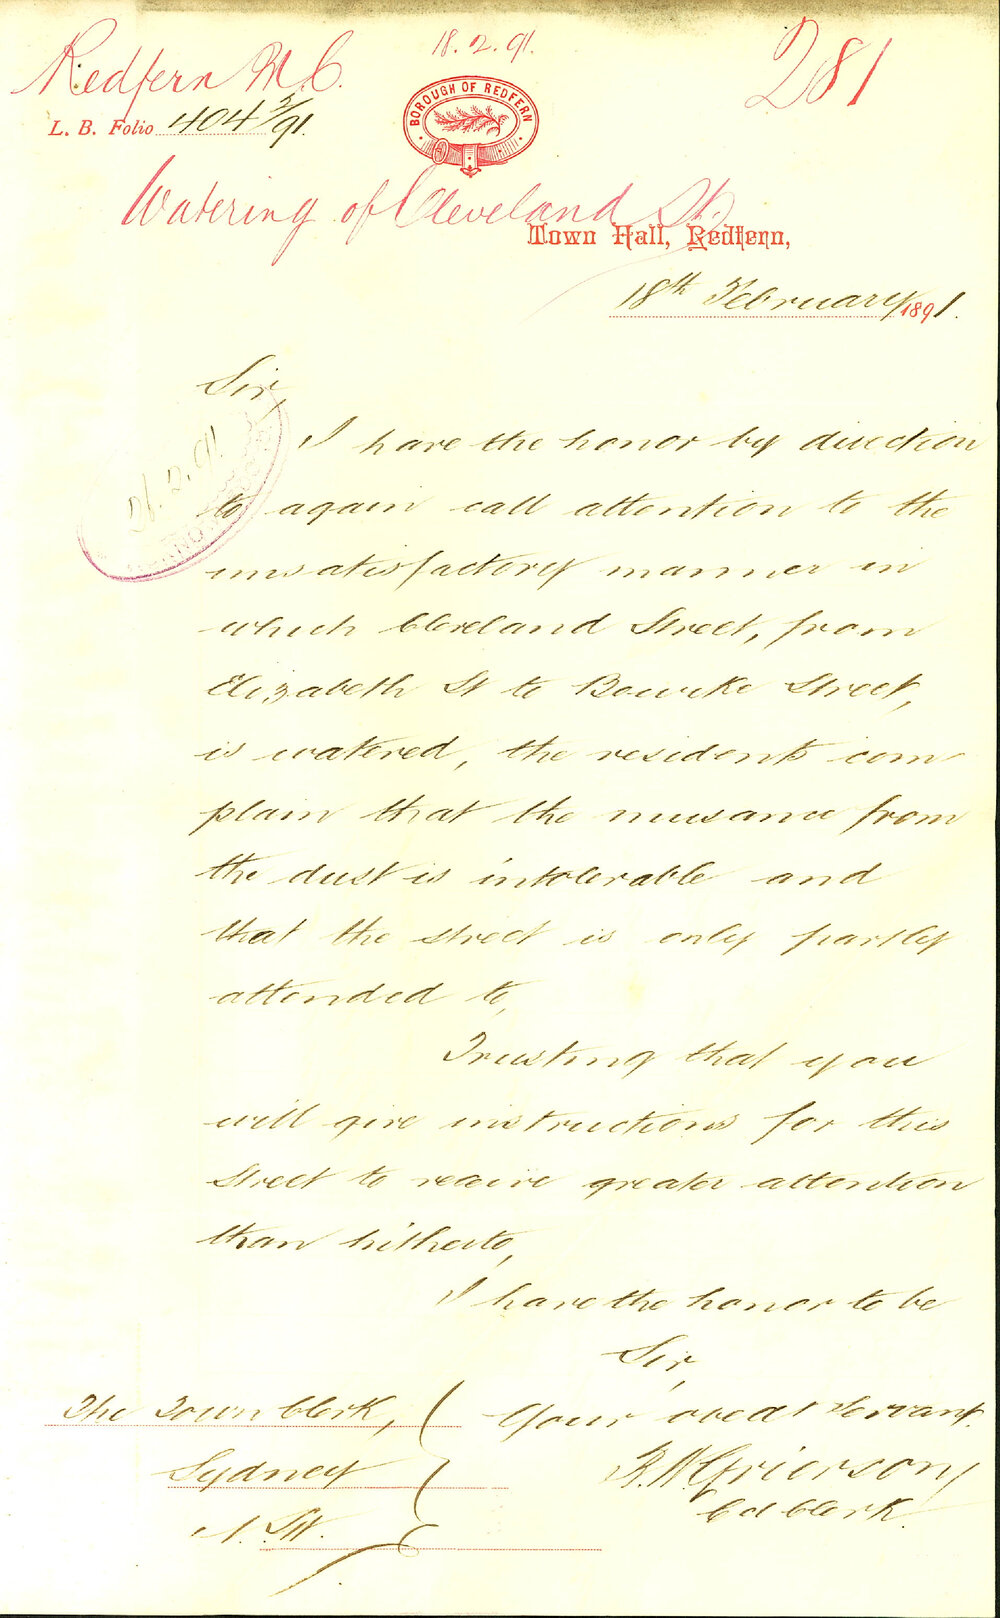 18.2.91.
Redfern M.C.
281
BOROUGH OF REDFERN
L. B. Folio 404 2/91.
Watering of Cleveland St.
Town Hall, Redfern,
18th February 1891.
Sir,
26.2.91
I have the honor by direction
to again call attention to the
unsatisfactory manner in
which Cleveland Street, from
Elizabeth St to Bourke Street,
is watered, the residents com
plain that the nuisance from
the dust is intolerable and
that the street is only partly
attended to,
Trusting that you
will give instructions for this
Street to receive greater attention
than hitherto,
I have the honor to be
Sir,
Your obedt Servant.
Grierson
Cl Clerk.
The Town Clerk,
Sydney